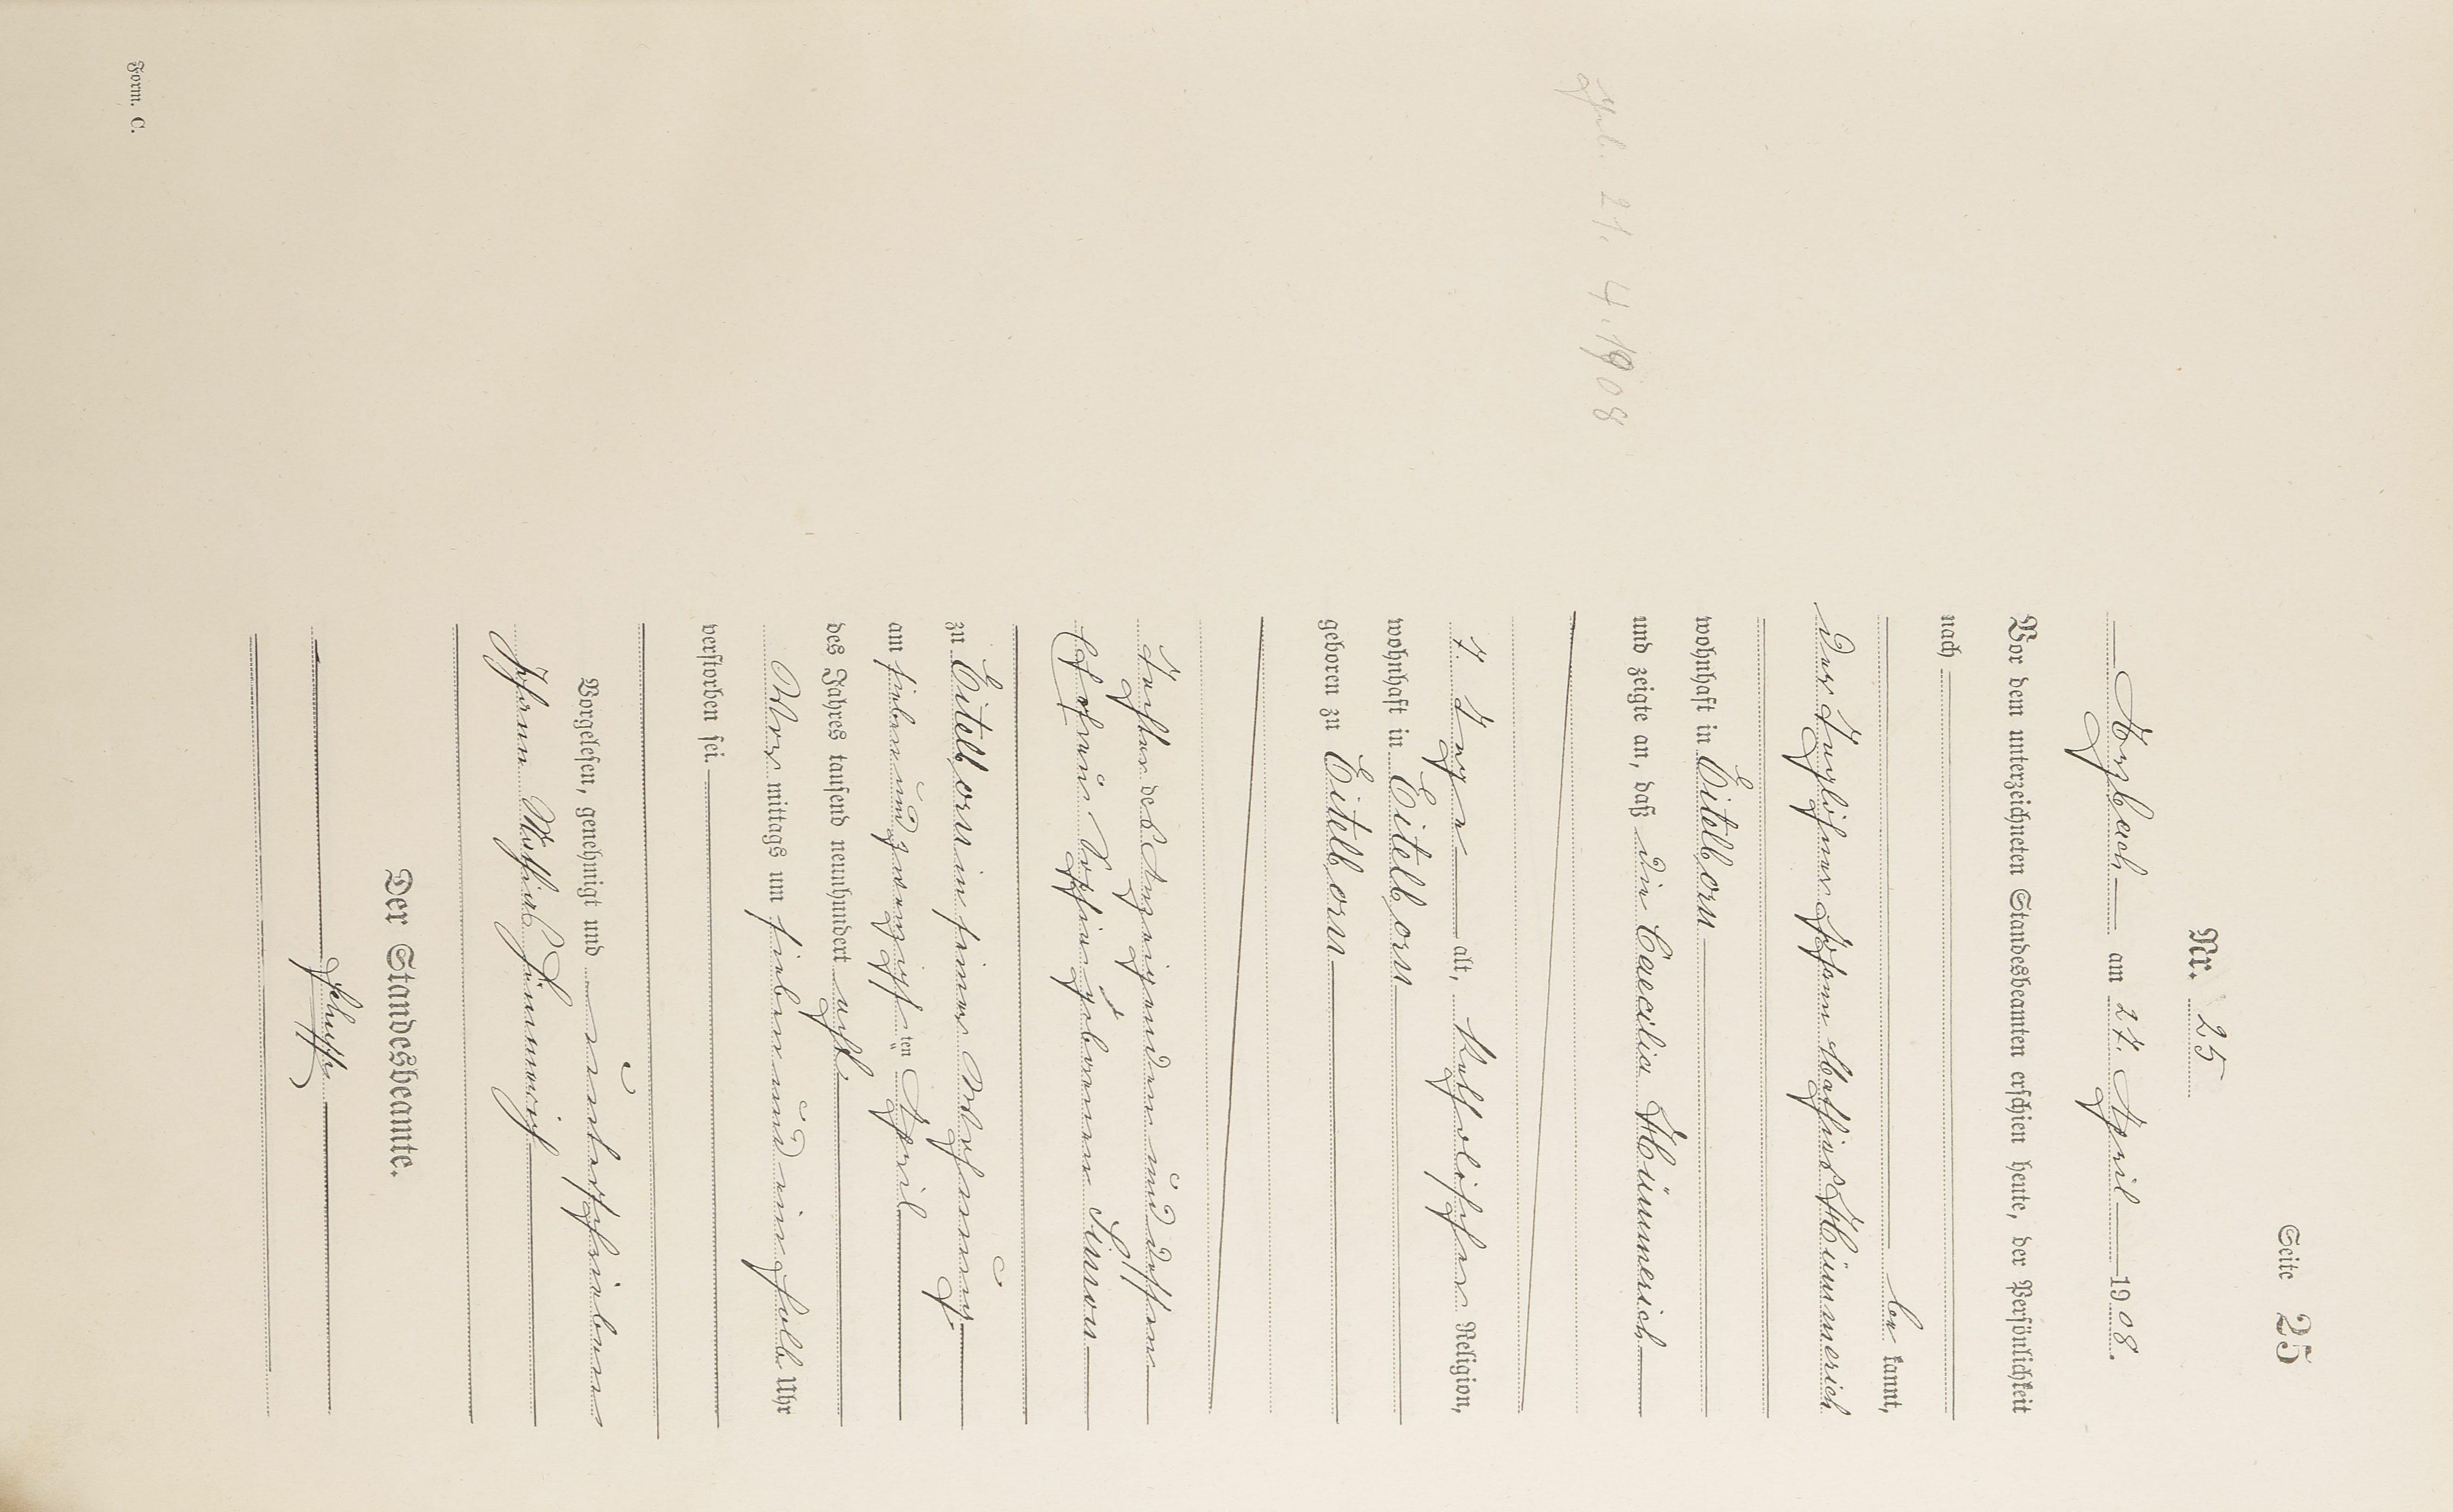 Seite 25
Nr. 25
Arzbach am 27. April 1908.
Vor dem unterzeichneten Standesbeamten erschien heute, der Persönlichkeit
nach
be kannt,
der Taglöhner Johann Mathias Hümmerich
wohnhaft in Eitelborn
und zeigte an, daß die Caecilia Hümmerich
7 Tage alt, katholischer Religion,
wohnhaft in Eitelborn
geboren zu Eitelborn
Tochter des Anzeigenden und dessen
Ehefrau geborenen Simon
zu Eitelborn in seiner Wohnung
am siebenundzwanzigsten April
des Jahres tausend neunhundert acht
Vor mittags um sieben und einhalb Uhr
verstorben sei.
Vorgelesen, genehmigt und unterschrieben
Johann Mathias Hümmerich
Der Standesbeamte.
geb. 21. 4. 1908
Form. C.